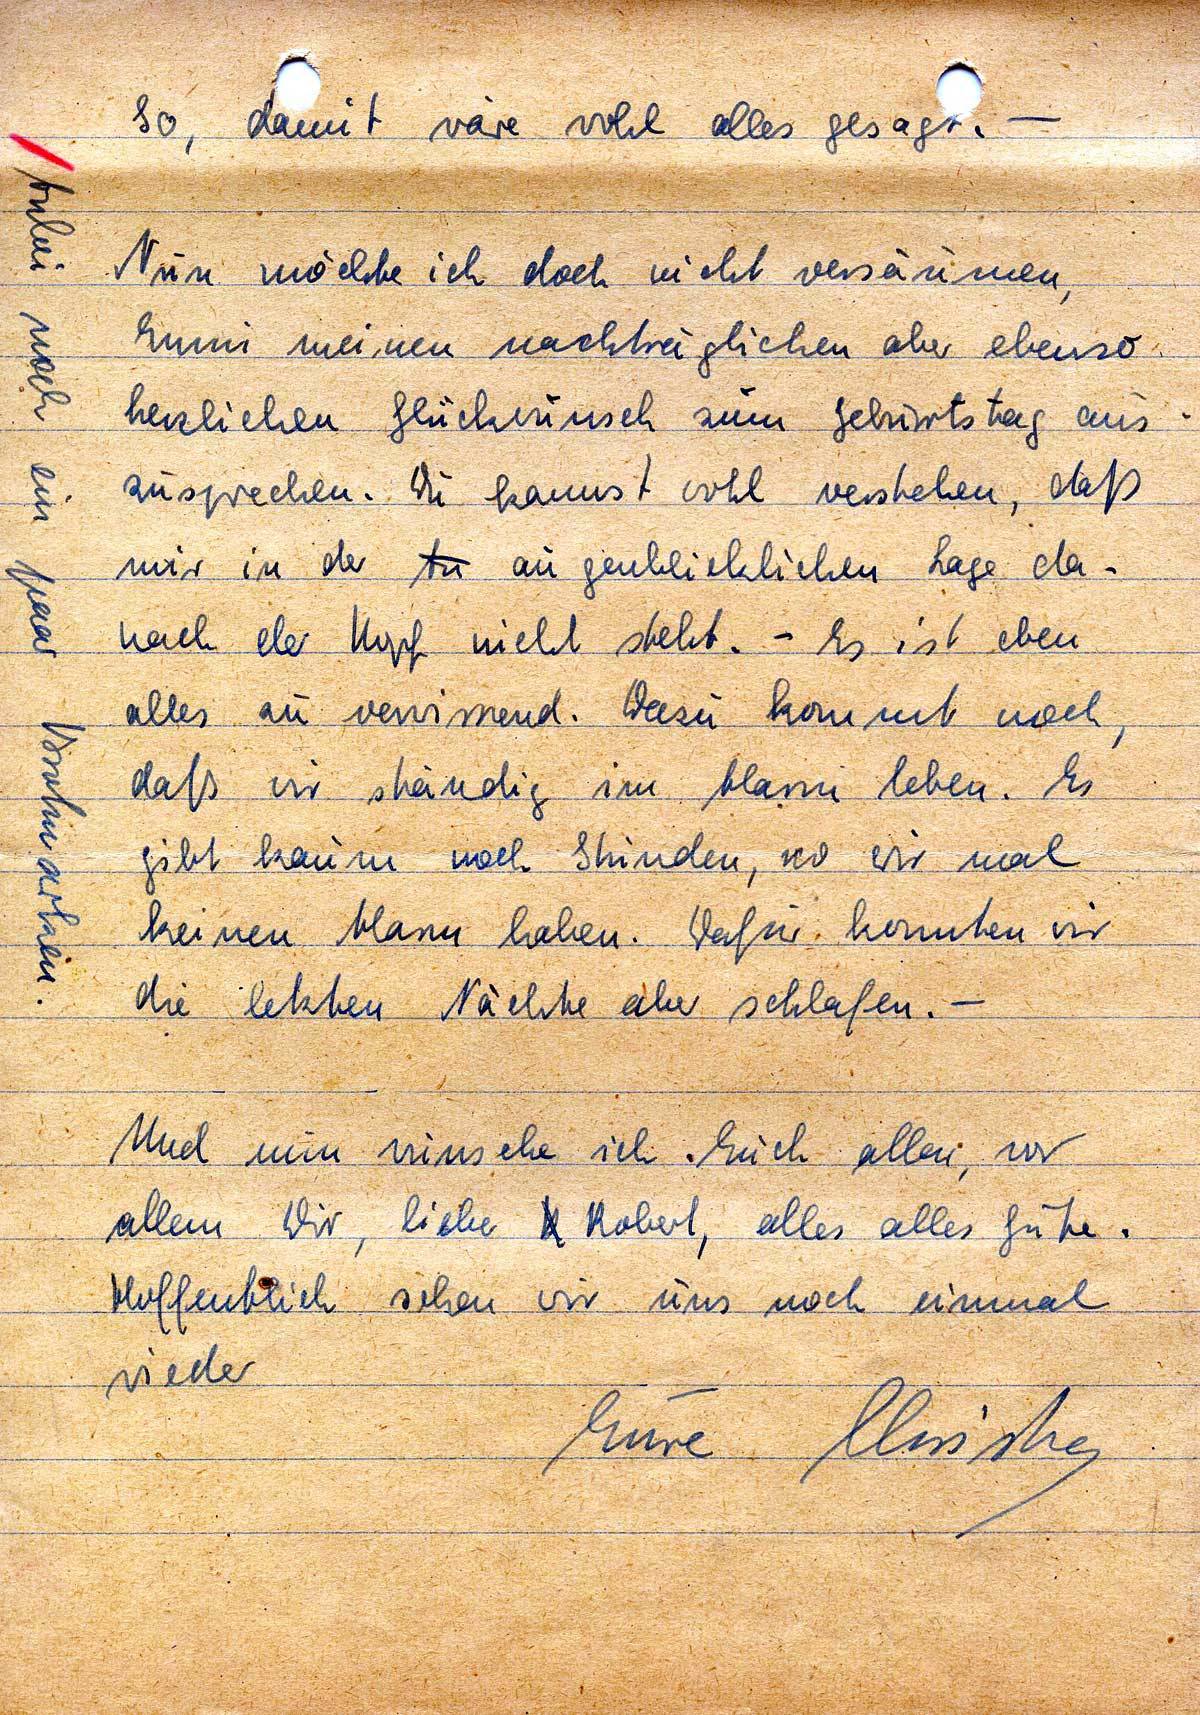 So, damit wäre wohl alles gesagt. —
Nun möchte ich doch nicht versäumen,
Emmi meinen nachträglichen aber ebenso
herzlichen Glückwunsch zum Geburtstag aus-
zusprechen. Du kannst wohl verstehen, daß
mir in der augenblicklichen Lage da-
nach der Kopf nicht steht. – Es ist eben
alles zu verwirrend. Dazu kommt noch,
daß wir ständig im Alarm leben. Es
gibt kaum noch Stunden, wo wir mal
keinen Alarm haben. Dafür konnten wir
die letzten Nächte aber schlafen. —
Und nun wünsche ich Euch allen, vor
allem Dir, lieber Robert, alles alles Gute.
Hoffentlich sehen wir uns noch einmal
wieder
Eure Christa
Anbei noch ein paar